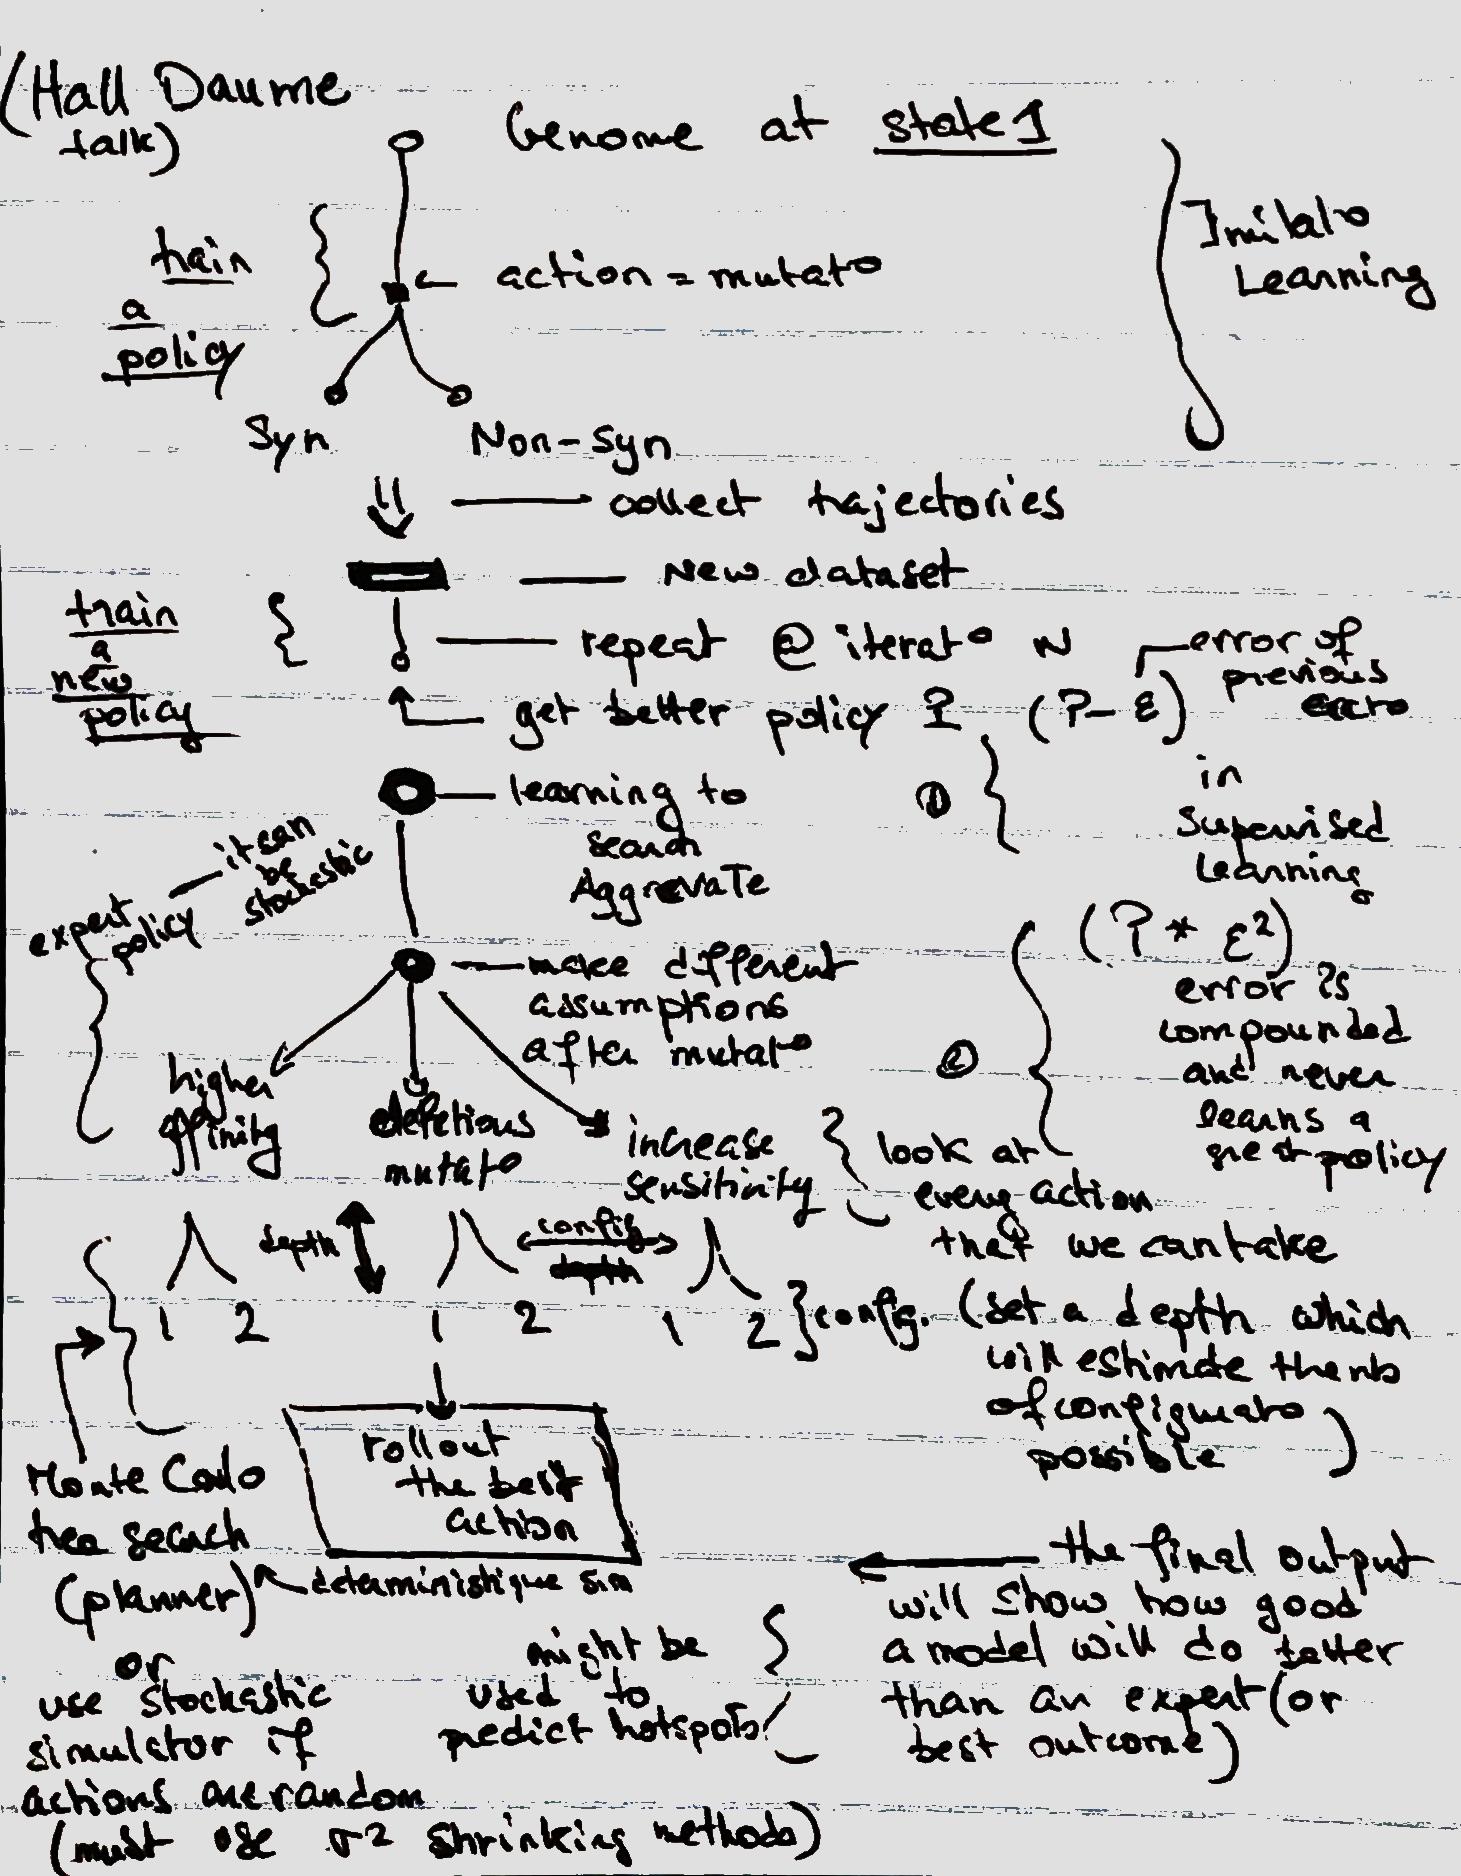 (Hall Daume
talk)
Genome at state 1
Imitat°
Learning
train
a
policy
action = mutat°
Syn
Non-Syn
collect trajectories
New dataset
train
a
new
policy
repeat @ iterat° N
error of
previous
get better policy ? (?- ε)
in
supervised
Learning
learning to
search
AggrevaTe
①
it can
be
stochastic
expert
policy
make different
assumptions
after mutat°
②
(? * ε²)
error is
compounded
and never
learns a
great policy
higher
affinity
deletious
mutat°
increase
sensitivity
look at
every action
that we can take
depth
config
depth
1 2
1 2
1 2
config. (set a depth which
will estimate the nb
of configurato
possible)
rollout
the best
action
Monte Carlo
tree search
(planner)
deterministique sim
the final output
will show how good
a model will do better
than an expert (or
best outcome)
might be
used to
predict hotspots
or
use stochastic
simulator if
actions are random
(must use σ² shrinking methods)